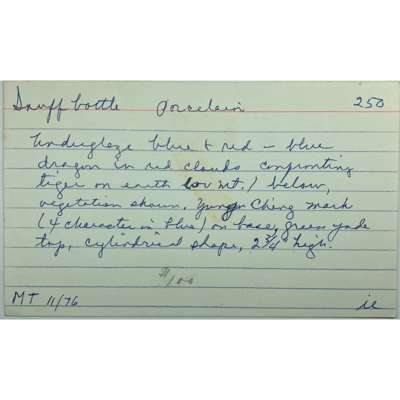 Snuff bottle porcelain 250
Underglaze blue & red - blue
dragon in red clouds confronting
tiger on earth (or Mt.) below,
vegetation shown. Yung Cheng mark
(4 character in blue) on base, green jade
top, cylindrical shape, 2 3/4" high.
/100
MT 11/76 il